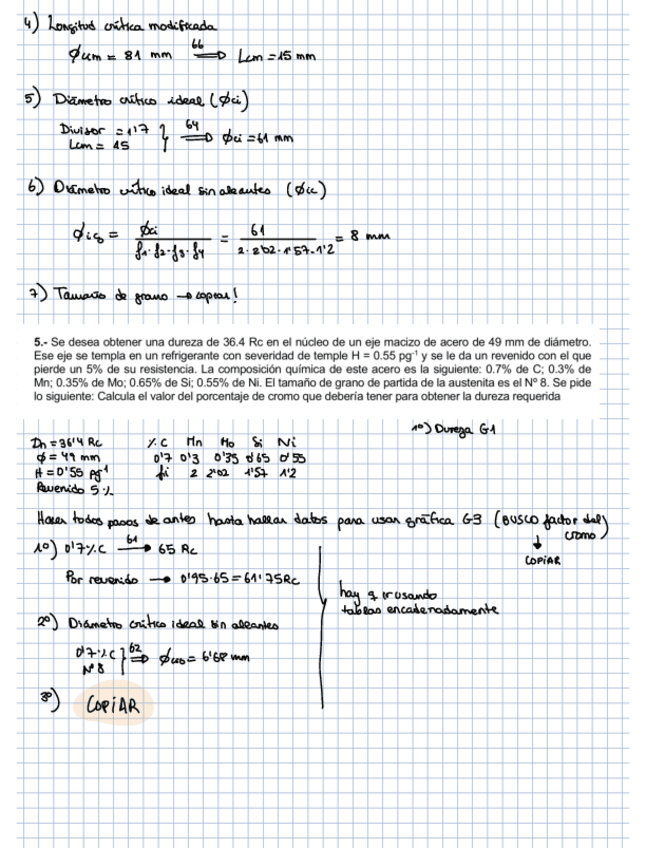 4) Longitud crítica modificada
φum = 81 mm 66⟹ Lcm = 15 mm
5) Diámetro crítico ideal (φci)
Divisor = 1'17
Lcm = 15 } 64⟹ φci = 61 mm
6) Diámetro crítico ideal sin aleantes (φic)
φico = φci / f1·f2·f3·f4 = 61 / 2·2'02·1'57·1'2 = 8 mm
7) Tamaño de grano → copiar!
5.- Se desea obtener una dureza de 36.4 Rc en el núcleo de un eje macizo de acero de 49 mm de diámetro.
Ese eje se templa en un refrigerante con severidad de temple H = 0.55 pg⁻¹ y se le da un revenido con el que
pierde un 5% de su resistencia. La composición química de este acero es la siguiente: 0.7% de C; 0.3% de
Mn; 0.35% de Mo; 0.65% de Si; 0.55% de Ni. El tamaño de grano de partida de la austenita es el Nº 8. Se pide
lo siguiente: Calcula el valor del porcentaje de cromo que debería tener para obtener la dureza requerida
1º) Dureza G1
Dn = 36'4 Rc % C Mn Mo Si Ni
φ = 49 mm 0'7 0'3 0'35 0'65 0'55
H = 0'55 pg⁻¹ fi 2 2'02 1'57 1'2
Revenido 5 %
Hacer todos pasos de antes hasta hallar datos para usar gráfica G3 (BUSCO factor del cromo)
↓
COPIAR
1º) 0'7% C G1→ 65 Rc
Por revenido → 0'95·65 = 61'75 Rc
hay q ir usando
tablas encadenadamente
2º) Diámetro crítico ideal sin aleantes
0'7% C
Nº 8 } G2⟹ φico = 6'68 mm
3º) COPIAR